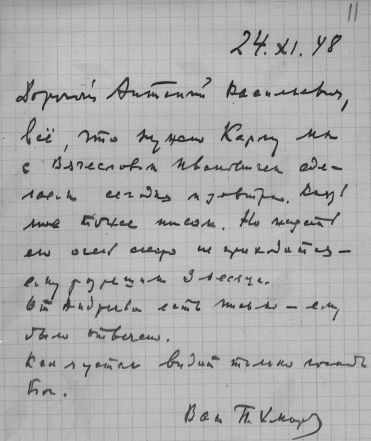 11
24.XI.48
Дорогой Антоний Васильевич,
всё, что нужно Карлу мы
с Вячеславом Ивановичем сде-
лаем сегодня и завтра.
мне тоже писал. Но ждать
его очень скоро не приходится —
ему разрешили 3 месяца.
От Андреева есть письмо — ему
было отвечено.
Как я устал видит только господь
Бог.
Ваш П.